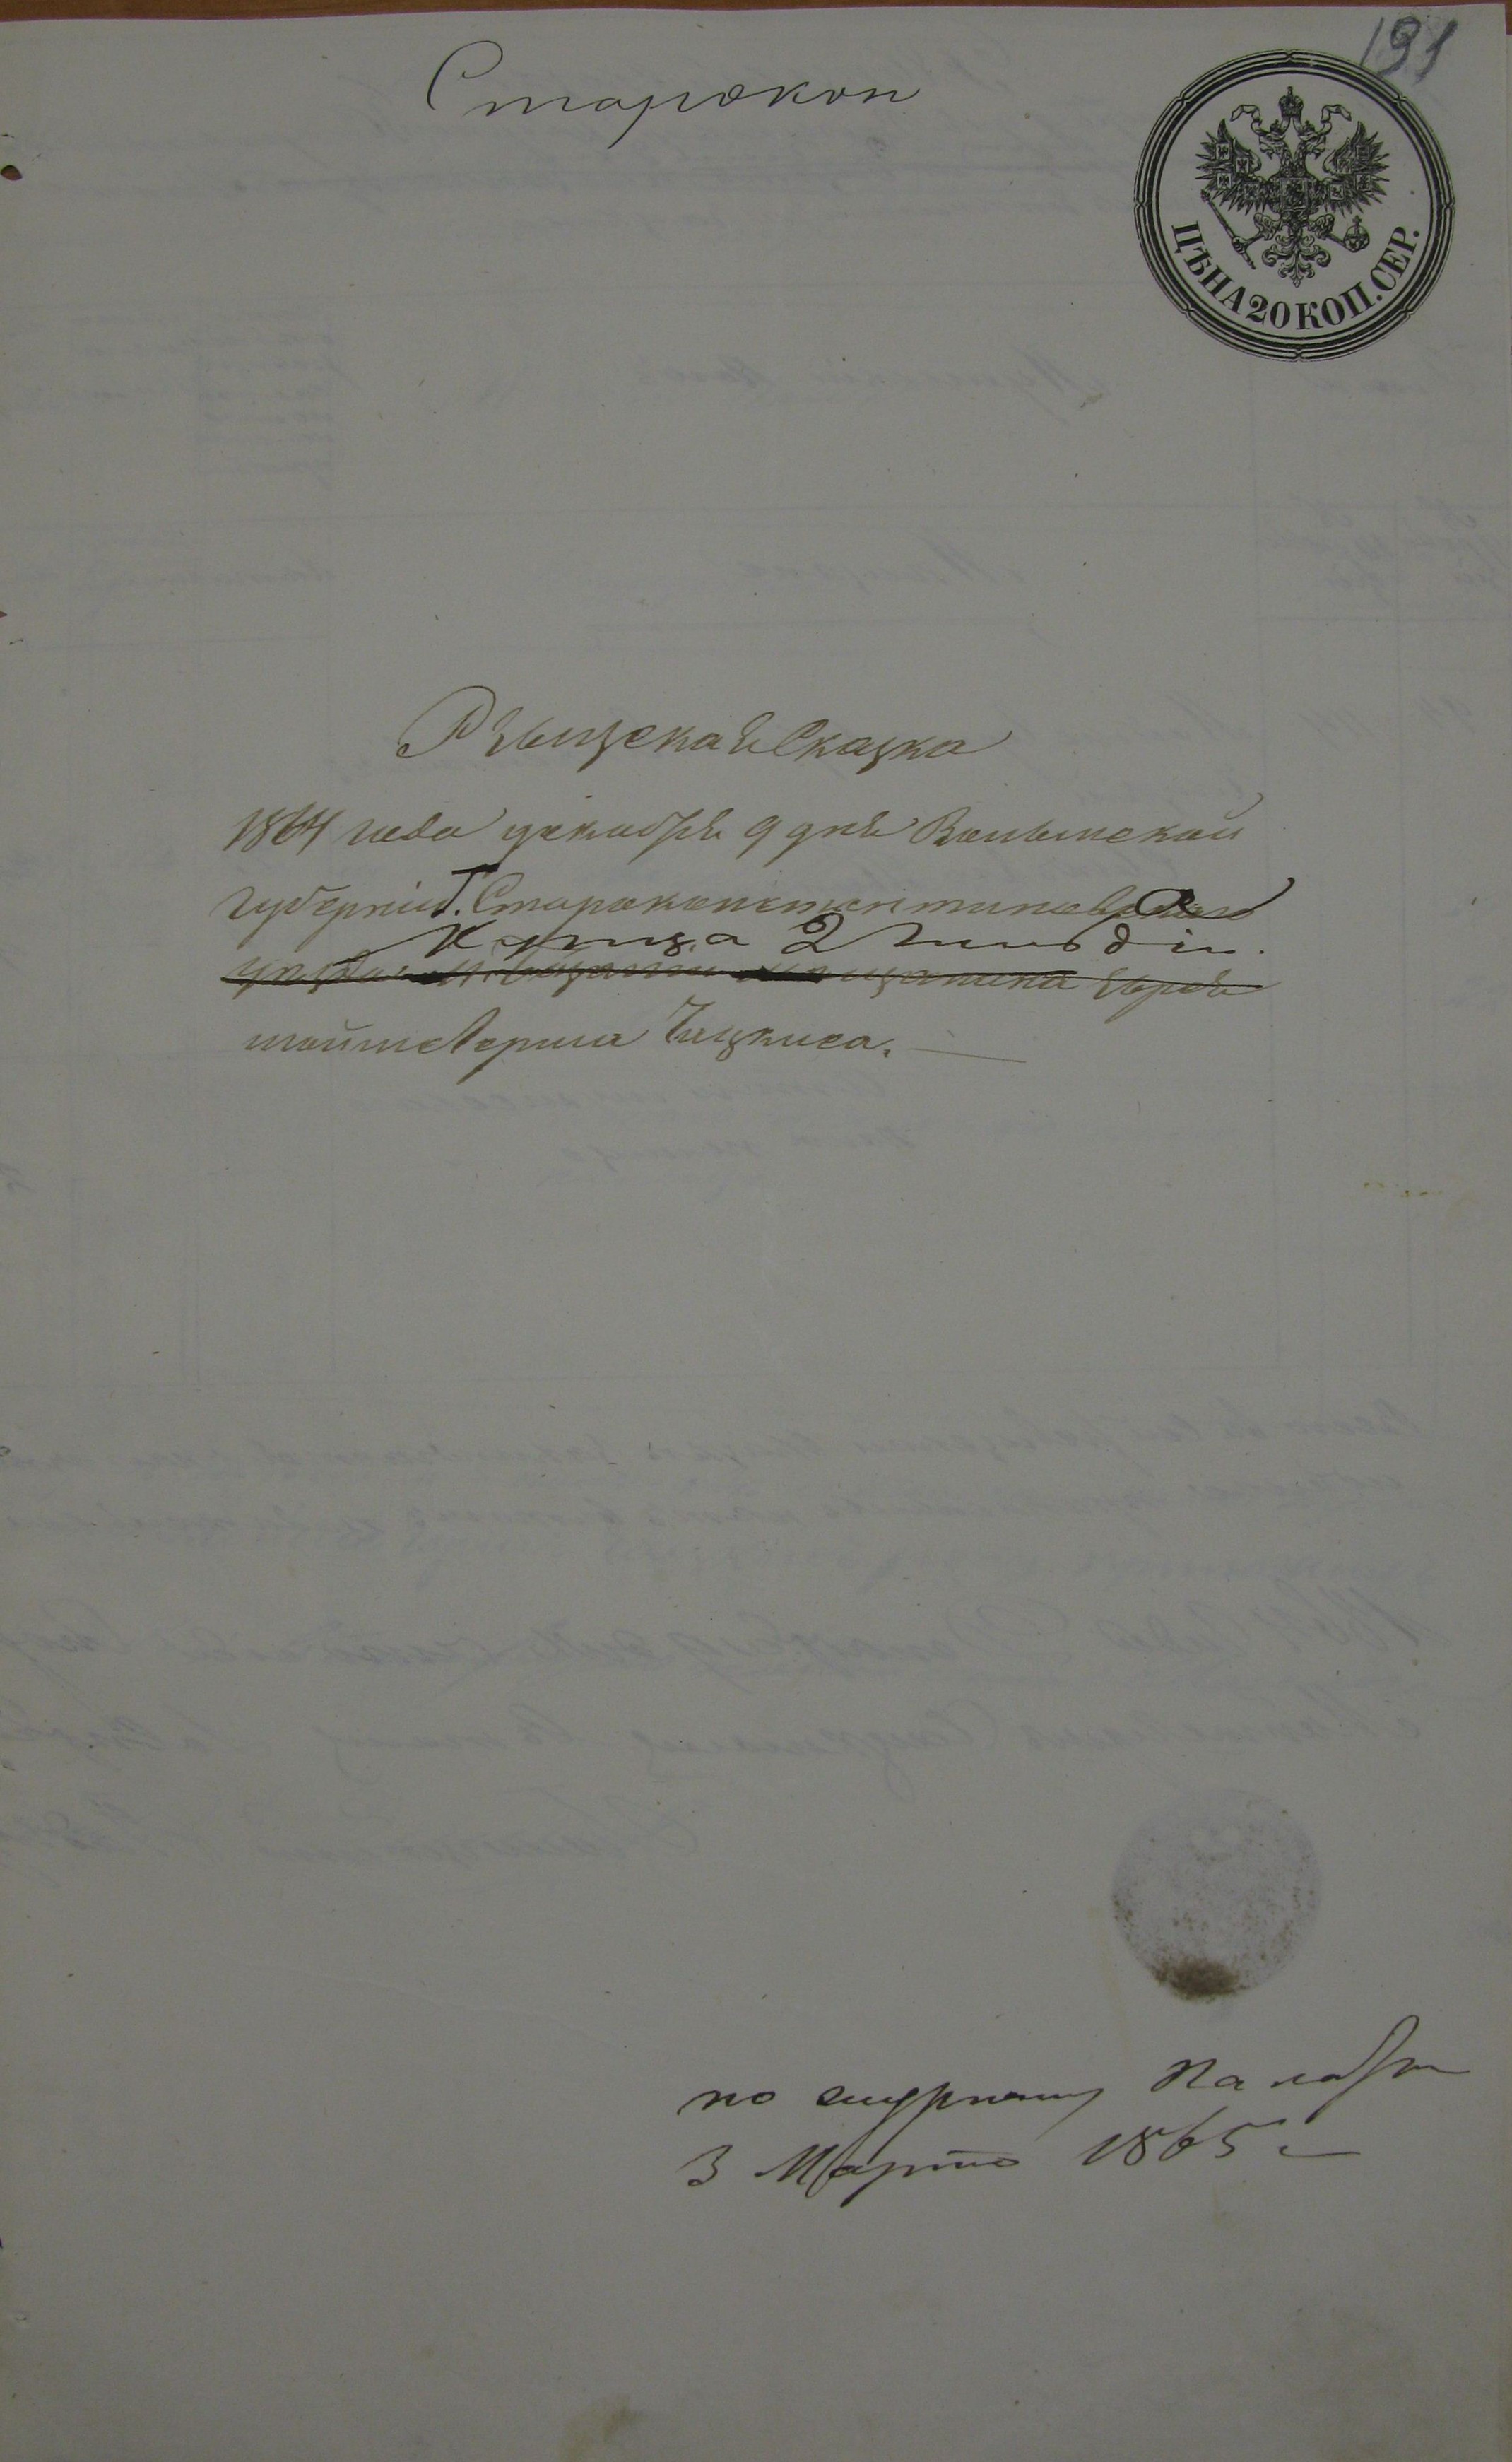 191
Старокон
ЦѢНА 20 КОП. СЕР.
Ревизская Сказка
1864 года декабря 9 дня Волынской
губернии Г. Староконстантинова
Купца 2 Гильдіи.
мещанина еврея
Чацкиса.
по журналу Палаты
3 Марта 1865 г